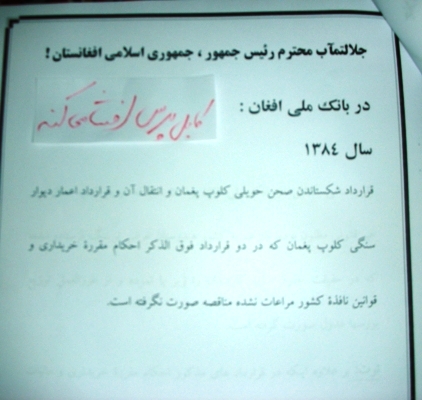 جلالتمآب محترم رئیس جمهور ، جمهوری اسلامی افغانستان !
در بانک ملی افغان :
کابل پرس افشا می کند
سال ۱۳۸٤
قرارداد شکستاندن صحن حویلی کلوپ پغمان و انتقال آن و قرارداد اعمار دیوار
سنگی کلوپ پغمان که در دو قرارداد فوق الذکر احکام مقررۀ خریداری و
قوانین نافذۀ کشور مراعات نشده مناقصه صورت نگرفته است.